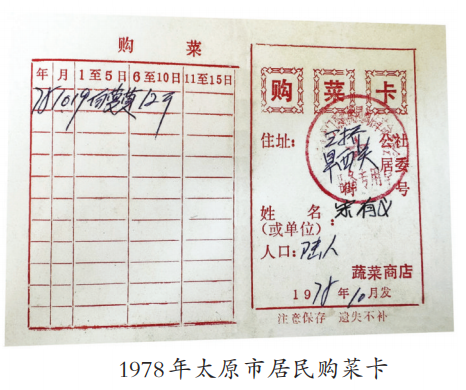 购 菜
年 月 1至5日 6至10日 11至15日
78 10.19
购 菜 卡
住址: 公社
居委
号
姓 名
(或单位): 宋有
人口: 陆人
蔬菜商店
1978年10月发
注意保存 遗失不补
1978年太原市居民购菜卡